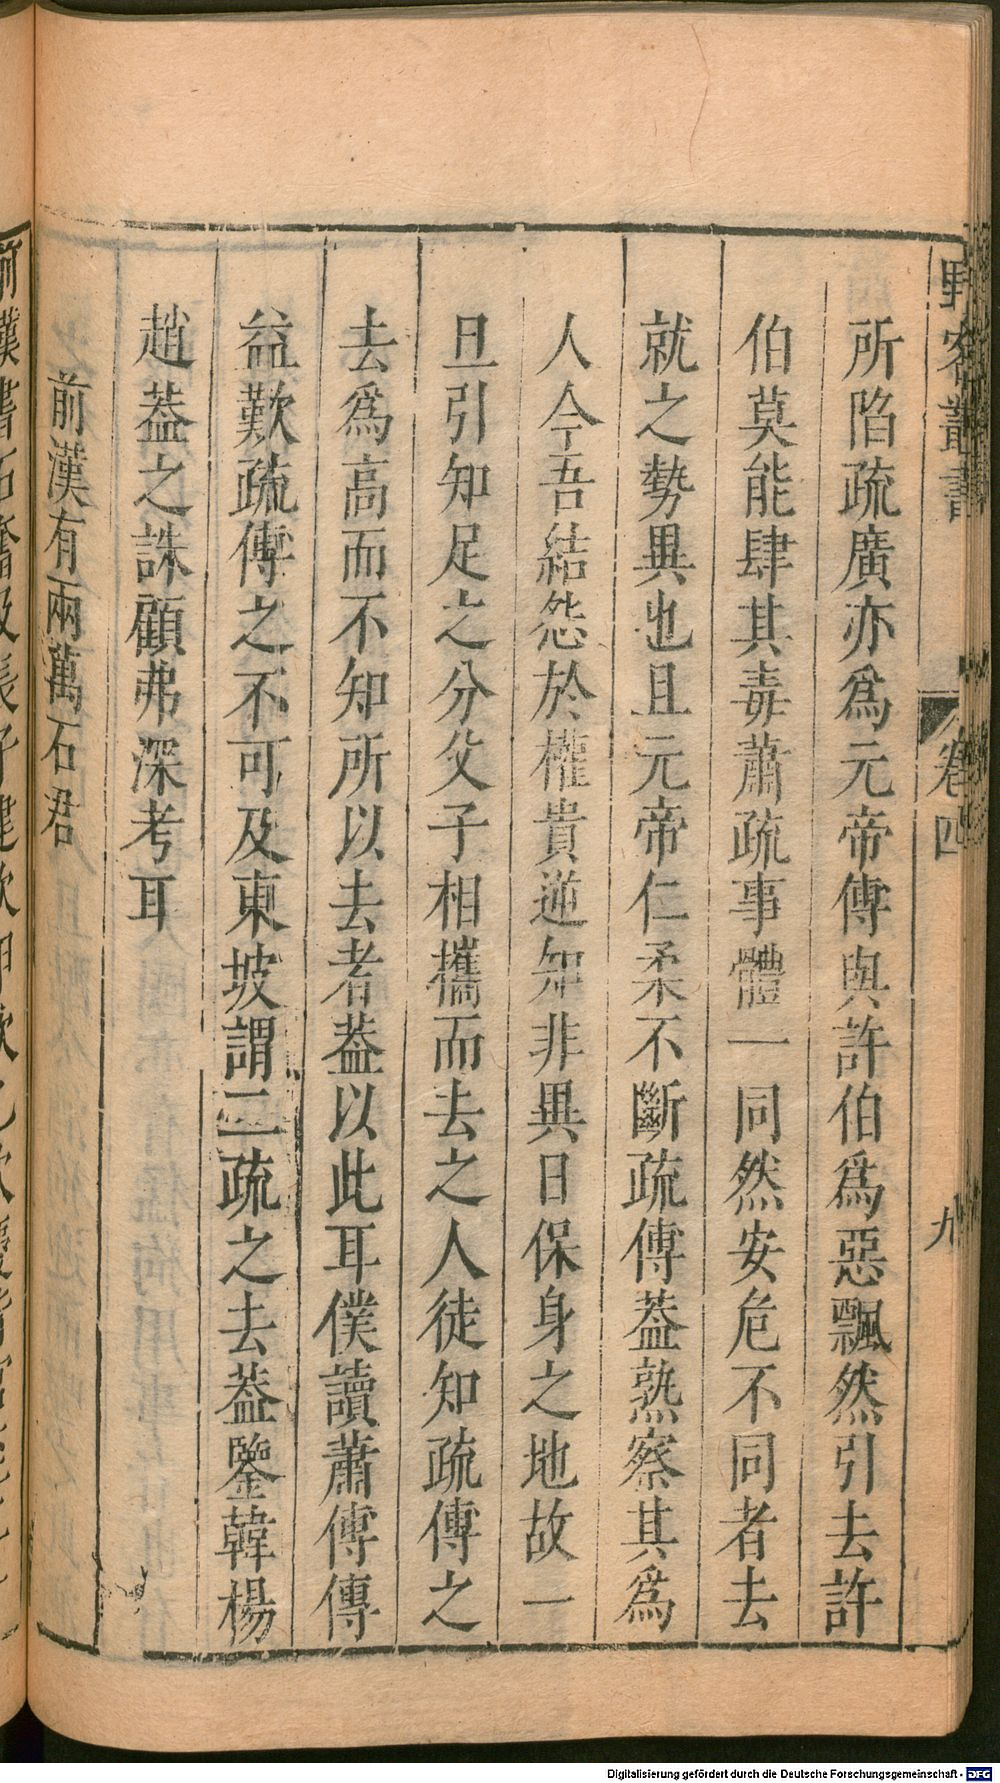 野客叢書
卷四
九
所陷疏廣亦爲元帝傅與許伯爲惡飄然引去許
伯莫能肆其毒蕭疏事體一同然安危不同者去
就之勢異也且元帝仁柔不斷疏傅葢熟察其爲
人今吾結怨於權貴逆知非異日保身之地故一
旦引知足之分父子相攜而去之人徒知疏傅之
去爲高而不知所以去者葢以此耳僕讀蕭傅傳
益歎疏傅之不可及東坡謂二疏之去葢鑒韓楊
趙葢之誅顧弗深考耳
前漢有兩萬石君
Digitalisierung gefördert durch die Deutsche Forschungsgemeinschaft - DFG